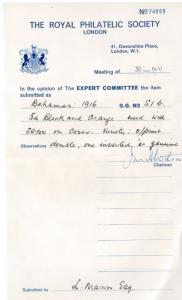 No 74895
THE ROYAL PHILATELIC SOCIETY
LONDON
41, Devonshire Place,
London, W.1.
Meeting of
In the opinion of The EXPERT COMMITTEE the item
submitted as
Bahamas 1916 S.G. No 51b.
5d Black and Orange used with
on Cover. Variety: o/print
Observations double, one inverted, is genuine
Chairman
Submitted by L. Mason Esq.